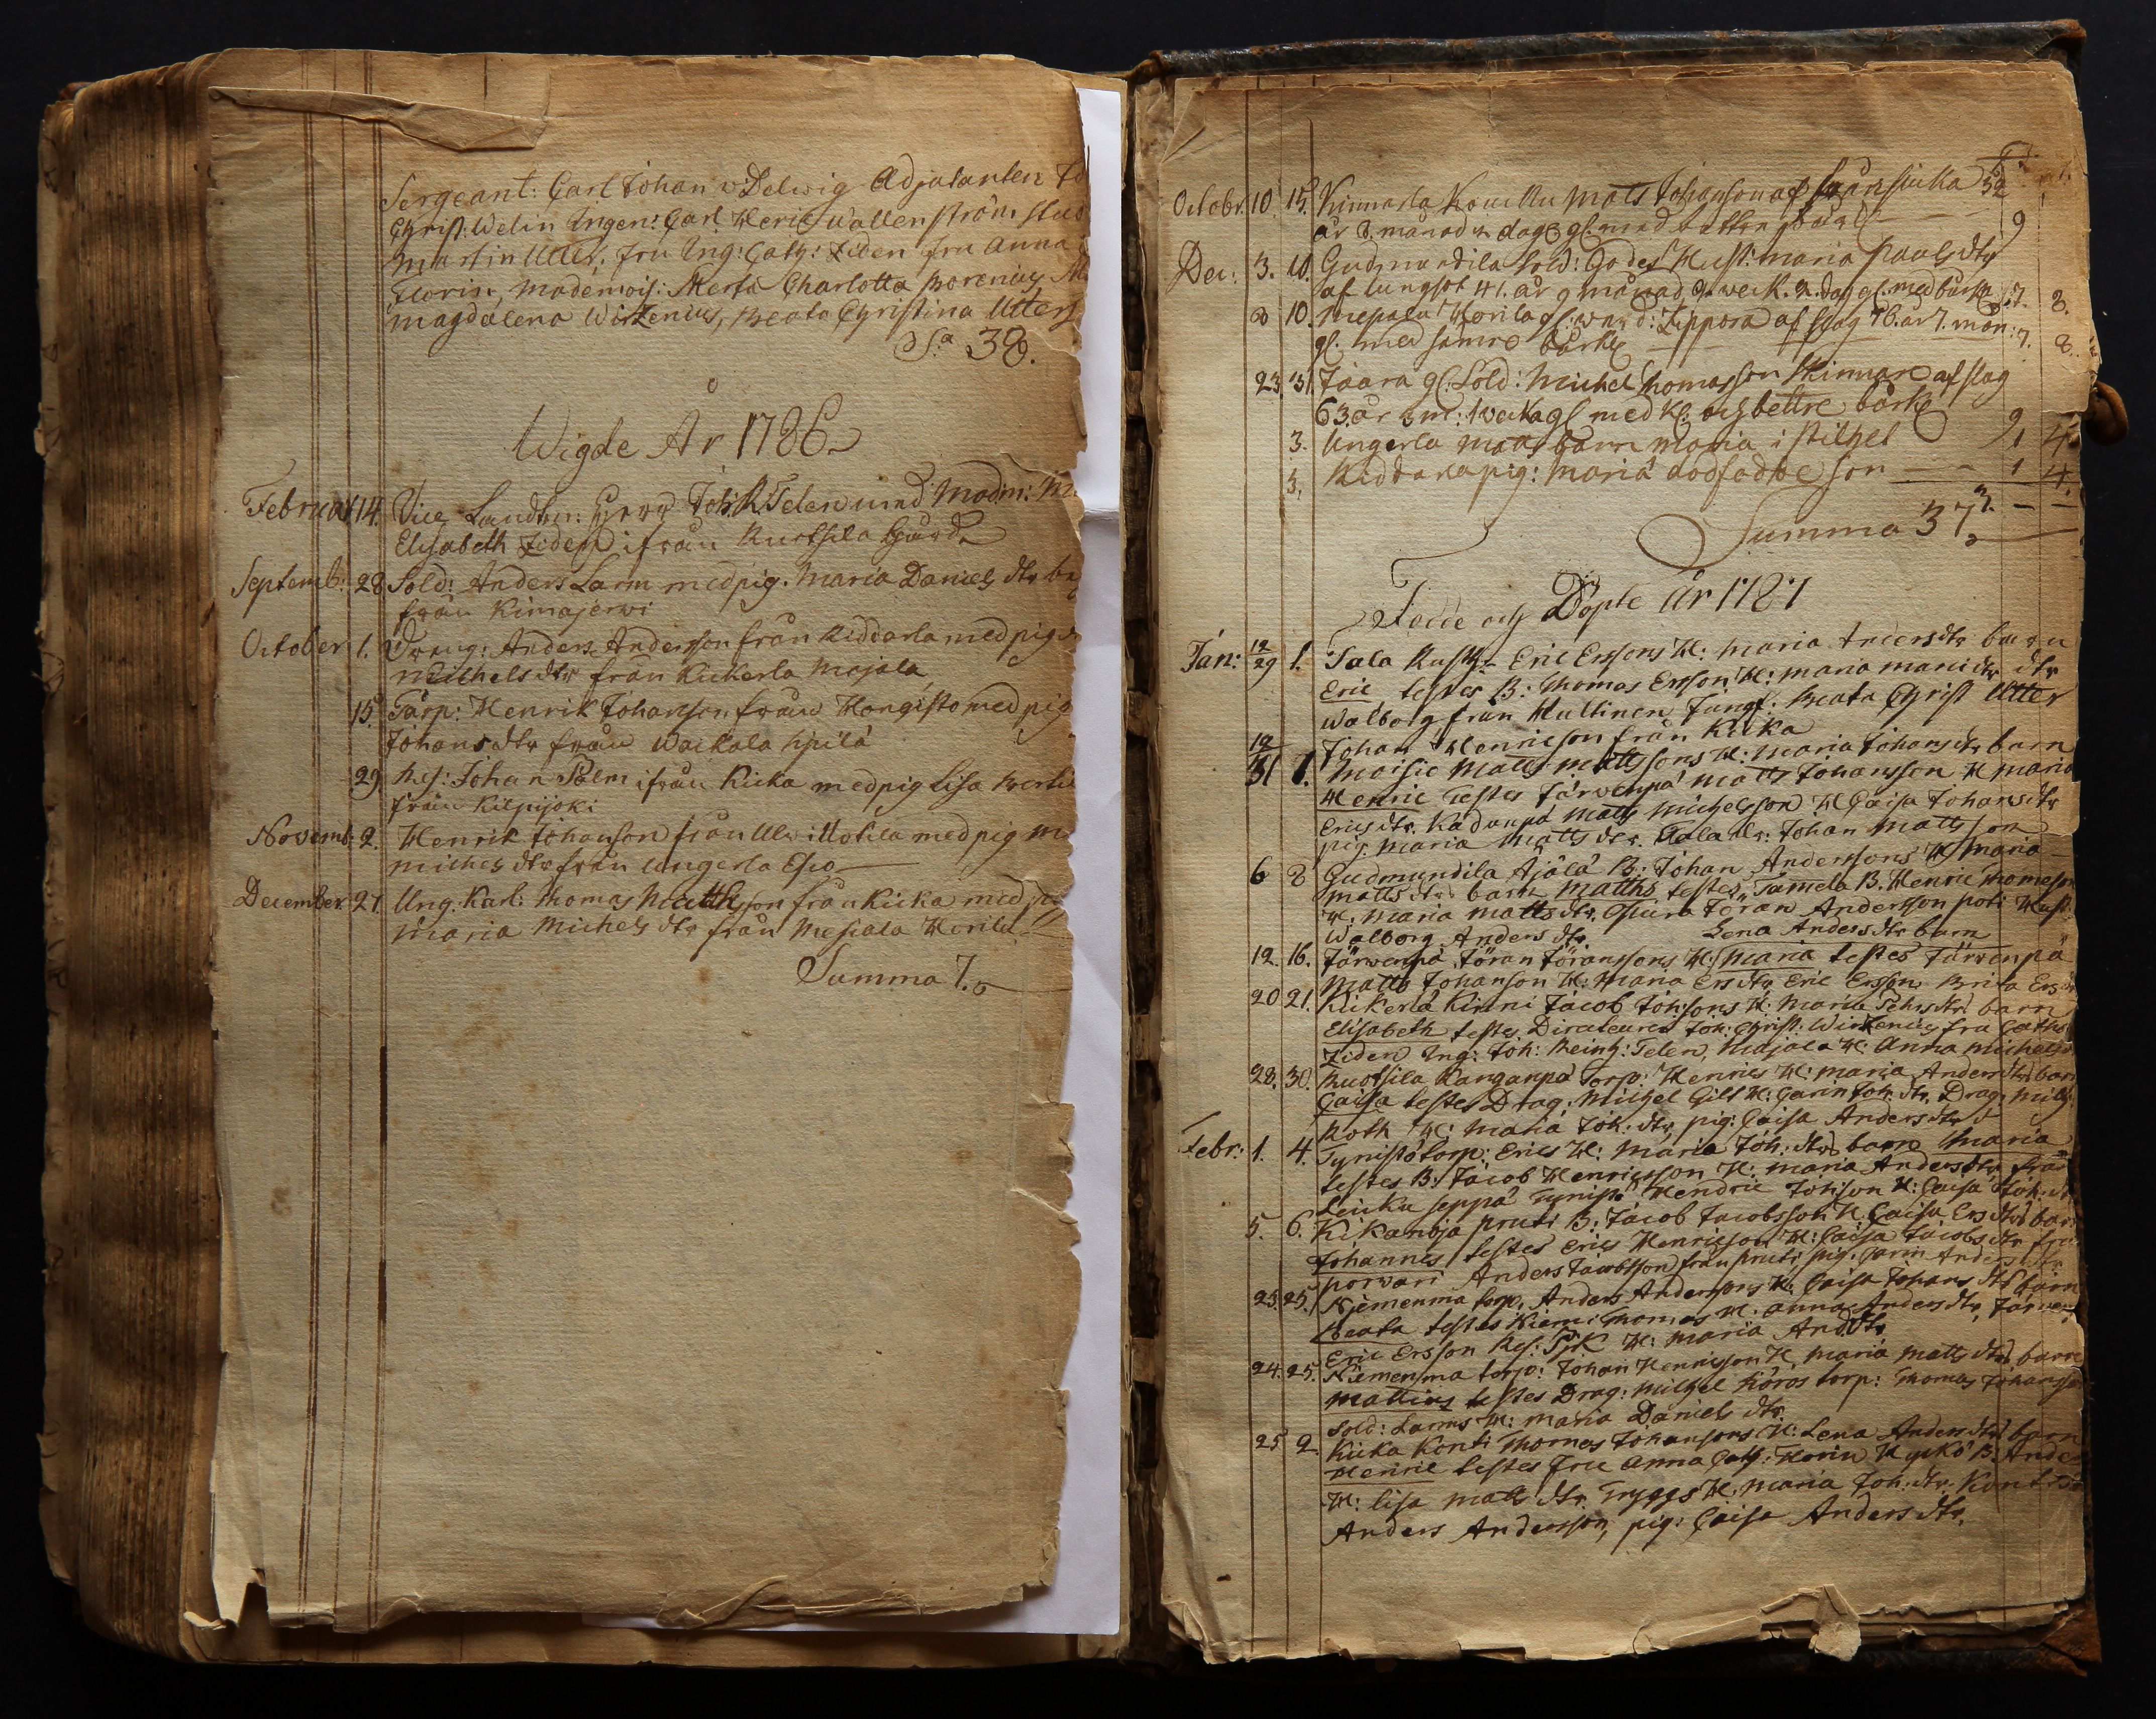 Sergeant: Carl Johan v: Delwig Adjutanten
Christ: Welin Ingen: Carl Heric Wallenström
Martin Utter, fru Ing: Cath: Ziden fru Anna
Florin, Mademois: Merta Charlotta Borenius
Magdalena Wirzenius, Beata Christina Utter
S:a 38.
Wigde År 1786
Februar 14. Vice Landtm: Herr Joh: R. Telen med Madm:
Elisabeth Ziden ifrån Ruotsila Gård
Septemb: 28 Sold: Anders Larm med pig. Maria Daniels dtr
från Kimajerwi
October 1. Dreng: Anders Andersson från Kiddarla med pig
Michels dtr från Kickerla Majala
15. Torp: Henrik Johanson från Hongisto med pig
Johans dtr från Waikala
29. Johan Palm ifrån Kicka med pig Lisa
från Kilpijoki
Novemb: 2. Henrik Johanson från med pig
Michels dtr från Ungerla
December 27. Ung: Karl: Thomas Mattsson från Kicka med
Maria Michels dtr från Horila
Summa 7.
Octobr. 10 15. Kinnarla Mats Johanson af 32
år 2. månad dag 9
Dec: 3. 10. Gudmundila Sold: Hust: Maria Pauls dtr
af lungsot 41. år 9 månad 2. weck. 2. dag gl. med 7. 8.
8 10. Horila Zippora af slag 76. år 7. mån: 7. 8.
gl. med samre
23 31 Jaara gl: Sold: Michel Thomasson Skinnare af slag
63. år 1 wecka gl med Kl: och bettre
3. Ungerla Matts barn Maria i stilhet 1 4
3. Kiddarla pig: Maria dödfödde son 1 4.
Summa 37
Födde och Döpte År 1787
Jan: 12/29 1. Tala Rusth: Eric Erssons H: Maria Anders dtr barn
Eric testes B: Thomas Ersson H: Maria dtr
Walborg från Hultinen Jungf: Beata Christ Utter
Johan Henricson från Kicka
12/31 1. Maisie Matts Mattssons H: Maria Johans dtr barn
Henric Testes Järwenpä Matts Johansson H Maria
Erics dtr. Kadunpä Matts Michelsson H Caisa Johans dtr
pig: Maria Matts dtr. Tala Dr: Johan Mattsson
6 8 Gudmundila Äjälä B: Johan Anderssons H Maria
Matts dtr barn Matths testes, Tamela B. Henric Thomeson
H. Maria Matts dtr, Jöran Andersson Hust
Walborg Anders dtr Lena Anders dtr barn
12. 16. Järwenpä Jöran Joranssons H: Maria testes Järwenpä
Matts Johanson H: Maria Ers dtr Eric Ersson Brita Ers
20 21. Kikerla Kinni Jacob Joh:sons H: Maria Pehrs dtr barn
Elisabeth testes Directeuren Joh: Christ: Wirzenius fru Cath:
Ziden Ing: Joh: Reinh: Telen, Majala H: Anna Michels
28. 30. Ruotsila Kanganpä Torp: Henrics H: Maria Anders dtr barn
Caisa testes Drag: Michel Gilt H: Carin Joh: dtr, Drag: Mich:
Roth H: Maria Joh: dtr, pig: Caisa Anders dtr
Febr: 1. 4. Tynistö torp: Erics H: Maria Joh: dtr barn Maria
testes B: Jacob Henricsson H: Maria Anders dtr från
Seppä Tynistö Hendric Joh:son H: Caisa Joh:
5. 6. Kikanoja Pruti B: Jacob Jacobsson H. Caisa Ers dtr barn
Johannes testes Erics Henricson H: Caisa Jacobs dtr från
Porwari Anders Jacobsson från Pruti, pig. Carin Anders dtr
23. 25. Niemenma torp: Anders Anderssons H: Caisa Johans dtr barn
Beata testes Niemi Thomas H: Anna Anders dtr, Järwenp
Eric Ersson H: Maria And: dtr
24. 25. Niemenma torp: Johan Henricsson H. Maria Matts dtr barn
Mattias testes Drag: Michel Köros torp: Thomas Johansson
Sold: Larms H: Maria Daniels dtr
25 2. Kicka Konti Thomas Johansons H: Lena Anders dtr barn
Henric testes Fru Anna Cath: Florin B: Ande
H: Lisa Matts dtr Tryggs H: Maria Joh: dtr.
Anders Andersson, pig: Caisa Anders dtr.